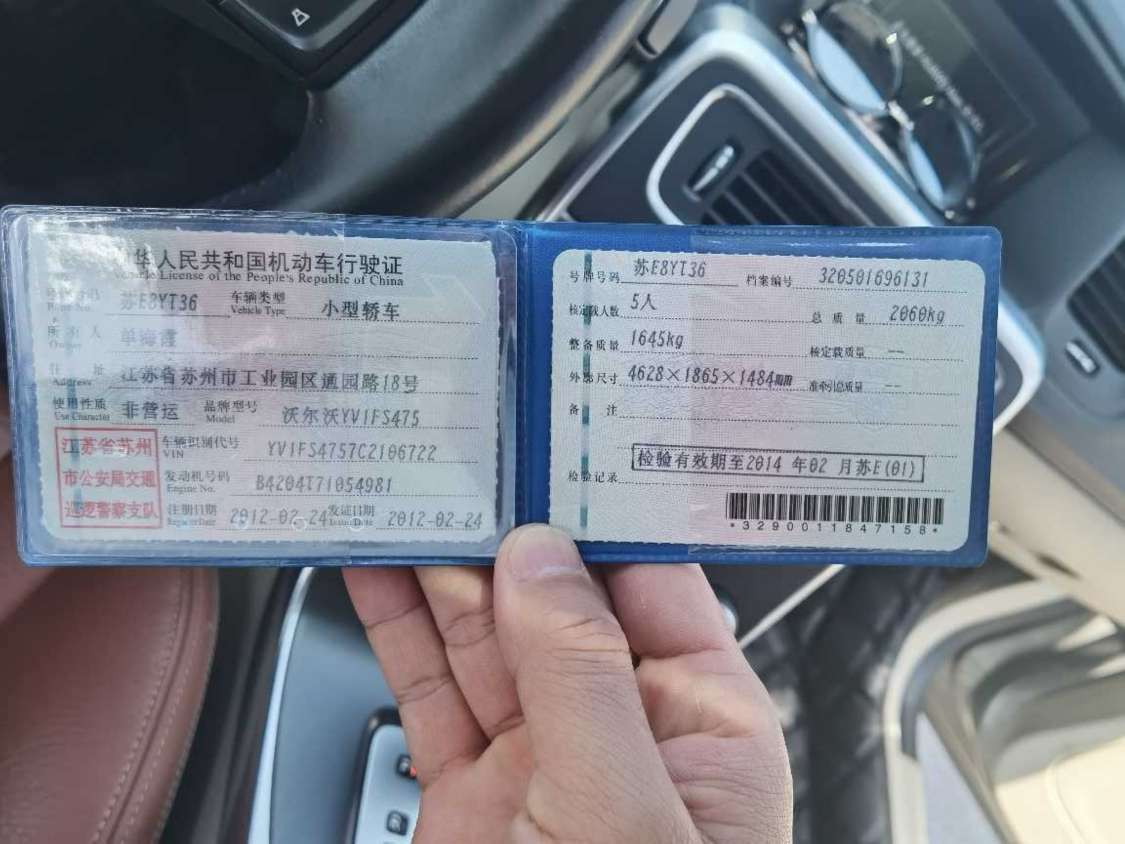 中华人民共和国机动车行驶证
Vehicle License of the People's Republic of China
号牌号码 苏E8YT36 车辆类型 小型轿车
Plate No. Vehicle Type
所有人 单海霞
Owner
住址 江苏省苏州市工业园区通园路18号
Address
使用性质 非营运 品牌型号 沃尔沃YV1FS475
Use Character Model
江苏省苏州
市公安局交通
巡逻警察支队
车辆识别代号 YV1FS4757C2106722
VIN
发动机号码 B4204T71054981
Engine No.
注册日期 2012-02-24 发证日期 2012-02-24
Register Date Issue Date
号牌号码 苏E8YT36 档案编号 320501696131
核定载人数 5人 总质量 2060kg
整备质量 1645kg 核定载质量 --
外廓尺寸 4628×1865×1484mm 准牵引总质量 --
备注
检验记录 检验有效期至2014年02月苏E(01)
*3290011847158*